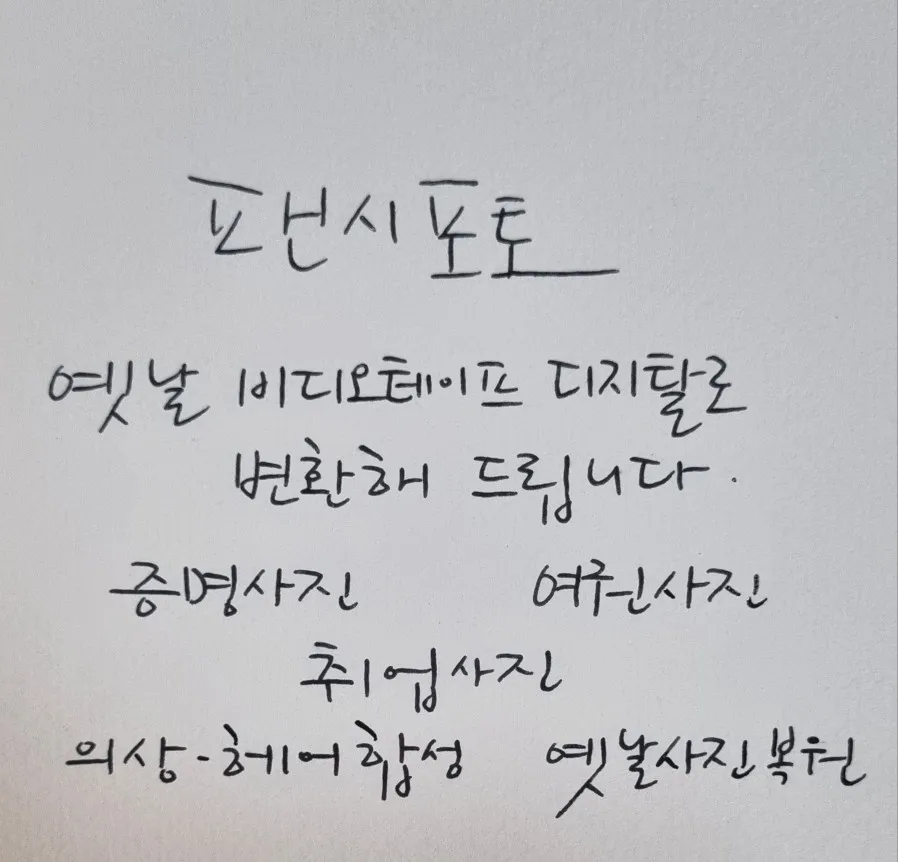 포넌시포토
옛날 비디오테이프 디지탈로
변환해 드립니다.
증명사진 여권사진
취업사진
의상-헤어합성 옛날사진복원